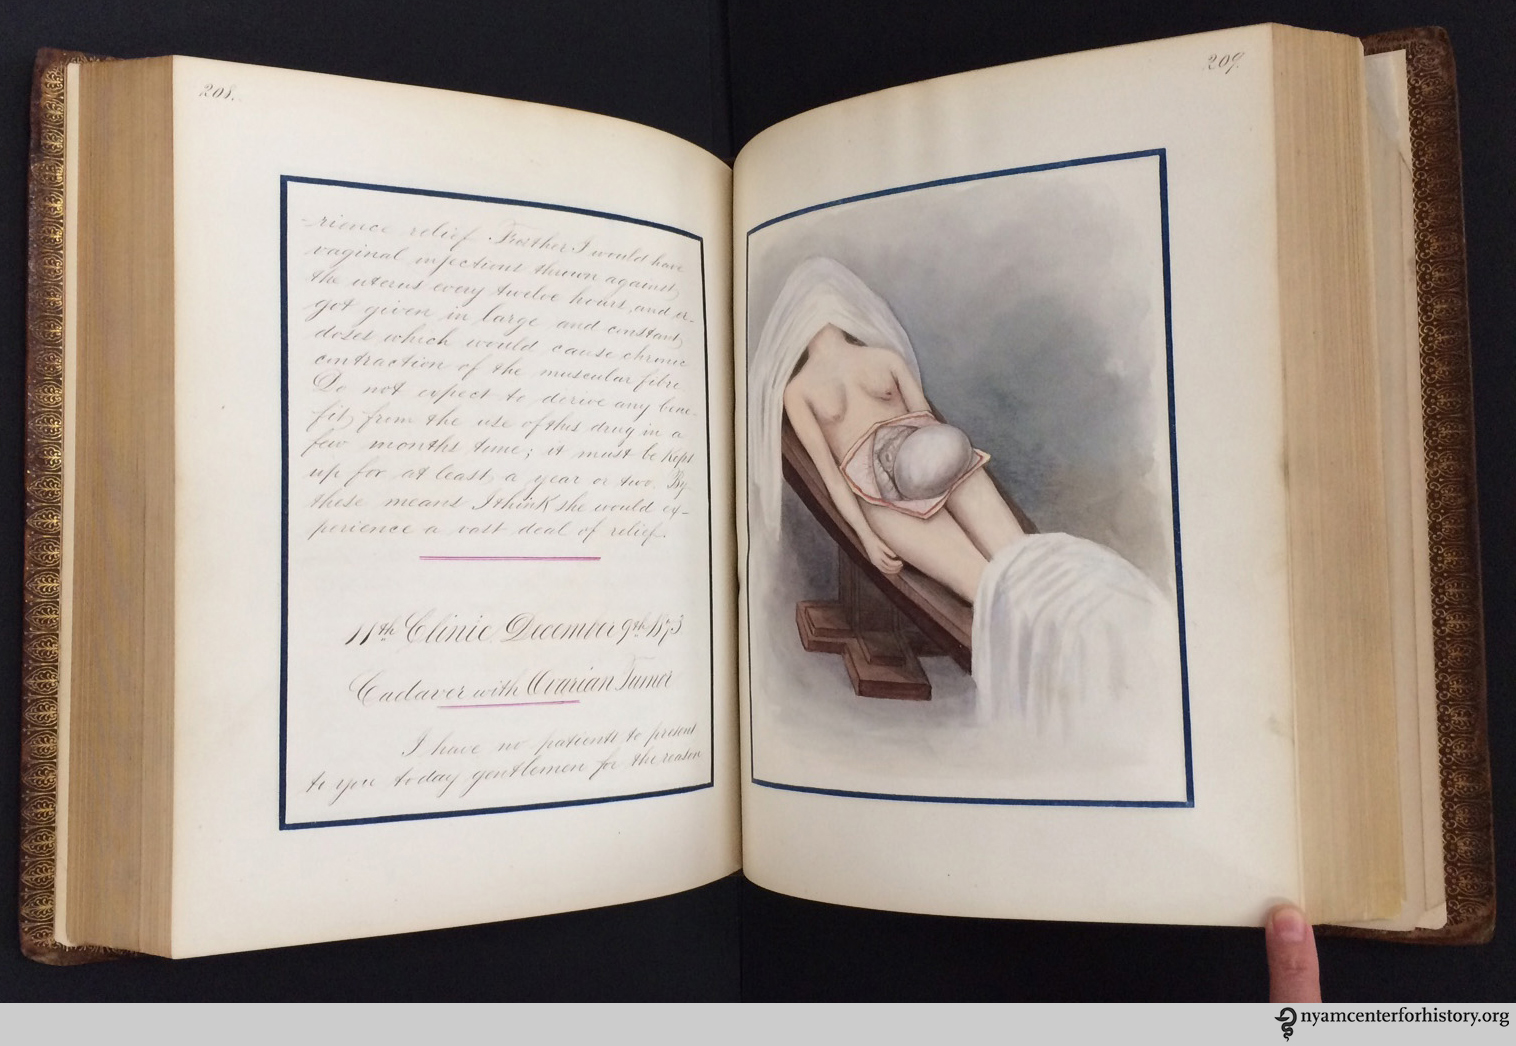 208.
-rience relief Further I would have
vaginal injections thrown against
the uterus every twelve hours, and er-
got given in large and constant
doses which would cause chronic
contraction of the muscular fibre
Do not expect to derive any bene-
fit from the use of this drug in a
few months time; it must be kept
up for at least a year or two. By
these means I think she would ex-
perience a vast deal of relief.
11th Clinic December 9th 1873
Cadaver with Ovarian Tumor
I have no patients to present
to you today gentlemen for the reason
209.
nyamcenterforhistory.org